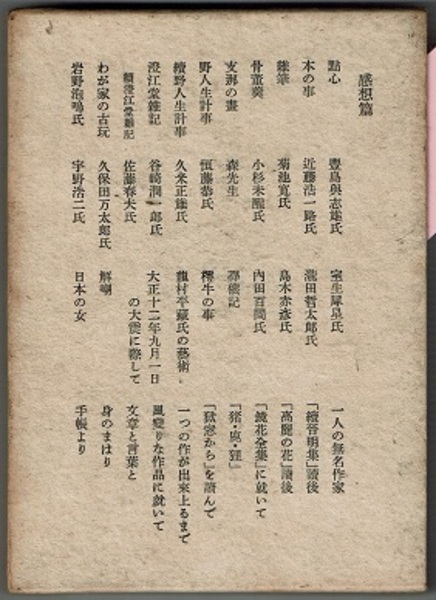 感想篇
點心
本の事
雜筆
骨董羹
支那の畫
野人生計事
續野人生計事
澄江堂雜記
續澄江堂雜記
わが家の古玩
岩野泡鳴氏
豐島與志雄氏
近藤浩一路氏
菊池寛氏
小杉未醒氏
森先生
恒藤恭氏
久米正雄氏
谷崎潤一郎氏
佐藤春夫氏
久保田万太郎氏
宇野浩二氏
室生犀星氏
瀧田哲太郎氏
島木赤彦氏
内田百間氏
牛の事
龍村平藏氏の藝術
大正十二年九月一日
の大震に際して
解嘲
日本の女
一人の無名作家
「續晉明集」讀後
「高麗の花」讀後
「鏡花全集」に就いて
「猪・鹿・狸」
「獄窓から」を讀んで
一つの作が出來上るまで
風變りな作品に就いて
文章と言葉と
身のまはり
手帳より